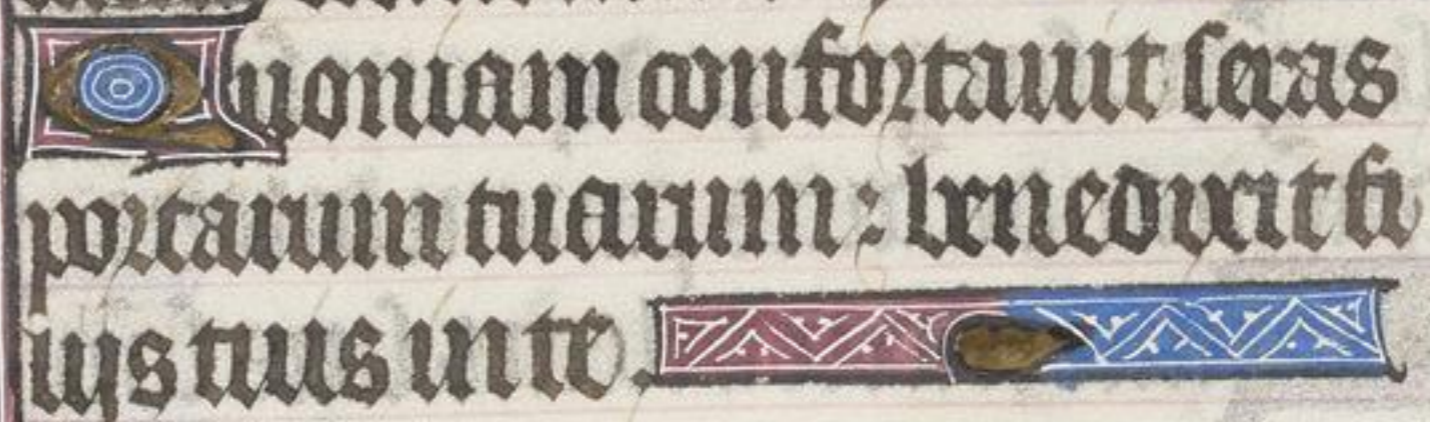 Quoniam confortauit seras
portarum tuarum : benedixit fi
lijs tuis in te.